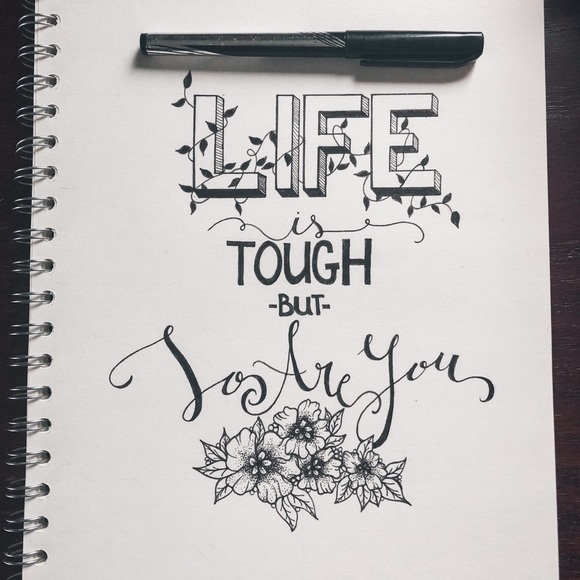 LIFE
is
TOUGH
-BUT-
So Are You